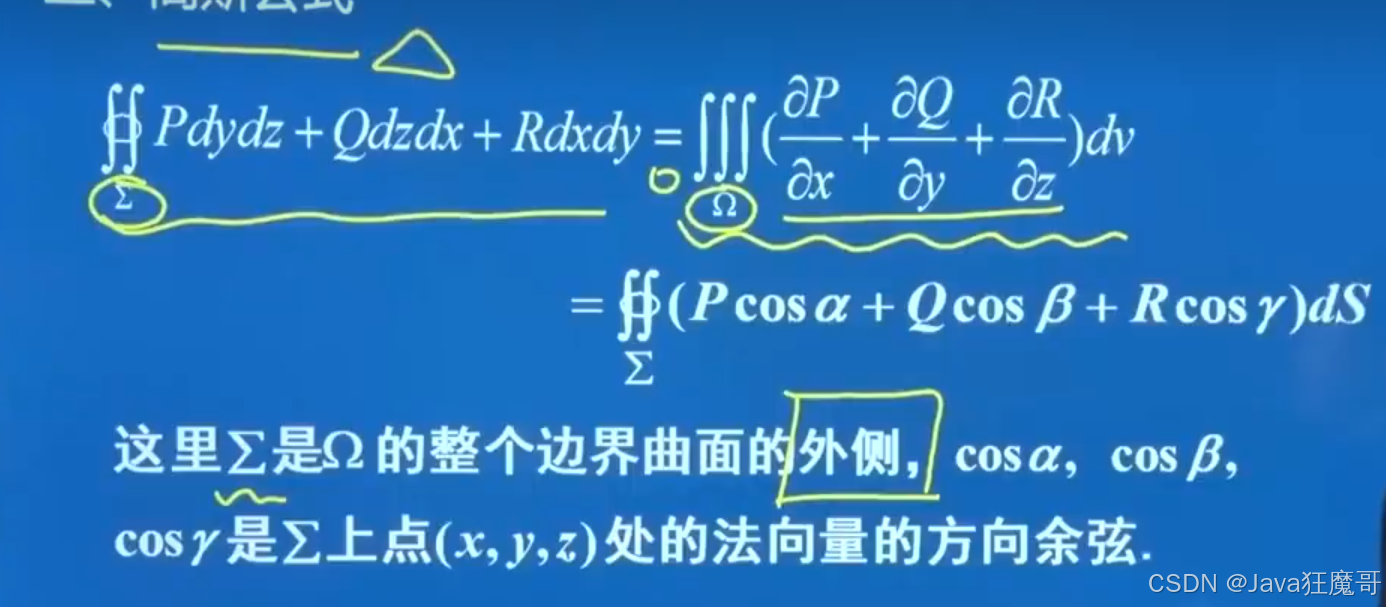 ∯_Σ Pdydz + Qdzdx + Rdxdy = ∭_Ω (∂P/∂x + ∂Q/∂y + ∂R/∂z)dv
= ∯_Σ (P cos α + Q cos β + R cos γ)dS
这里Σ是Ω的整个边界曲面的外侧, cos α, cos β,
cos γ是Σ上点(x, y, z)处的法向量的方向余弦.
CSDN @Java狂魔哥